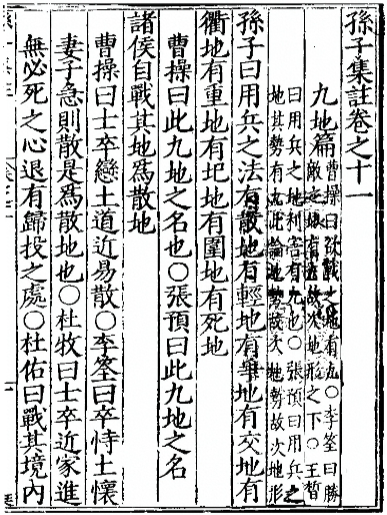 孫子集註卷之十一
九地篇
曹操曰欲戰之地有九〇李筌曰勝
敵之地有九故次地形之下〇王晳
曰用兵之地利害有九也〇張預曰用兵之
地其勢有九此論地勢故次地形
孫子曰用兵之法有散地有輕地有爭地有交地有
衢地有重地有圮地有圍地有死地
曹操曰此九地之名也〇張預曰此九地之名
諸侯自戰其地爲散地
曹操曰士卒戀土道近易散〇李筌曰卒恃土懷
妻子急則散是爲散地也〇杜牧曰士卒近家進
無必死之心退有歸投之處〇杜佑曰戰其境內